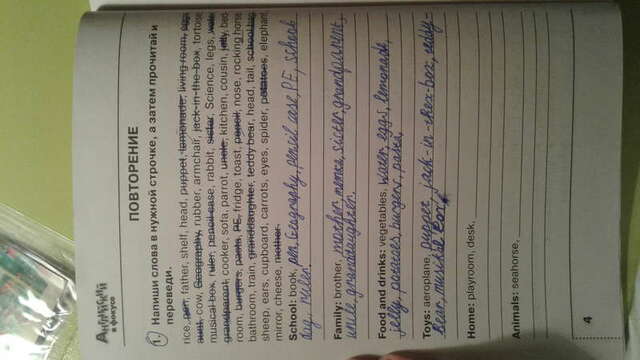 Английский
в фокусе
ПОВТОРЕНИЕ
1. Напиши слова в нужной строчке, а затем прочитай и
переведи.
rice, pen, father, shelf, head, puppet, lemonade, living room, eggs
aunt, cow, Geography, rubber, armchair, jack-in-the-box, tortoise
musical box, ruler, pencil case, rabbit, sister, Science, legs, water
grandparent, cooker, sofa, parrot, uncle, kitchen, cousin, jelly, bed-
room, burgers, pasta, PE, fridge, toast, pencil, nose, rocking horse
bathroom, train, granddaughter, teddy bear, head, tail, school bag
sheep, ears, cupboard, carrots, eyes, spider, potatoes, elephant
mirror, cheese, mother
School: book, pen, Geography, pensil case, PE, school
bag, ruler.
Family: brother, mother, sister, grandparent,
uncle, granddaughter.
Food and drinks: vegetables, water, eggs, lemonade,
jelly, potatoes, burgers, pasta,
Toys: aeroplane, puppet, jack-in-thex-box, teddy-
Bear, musikal Box,
Home: playroom, desk,
Animals: seahorse,
4